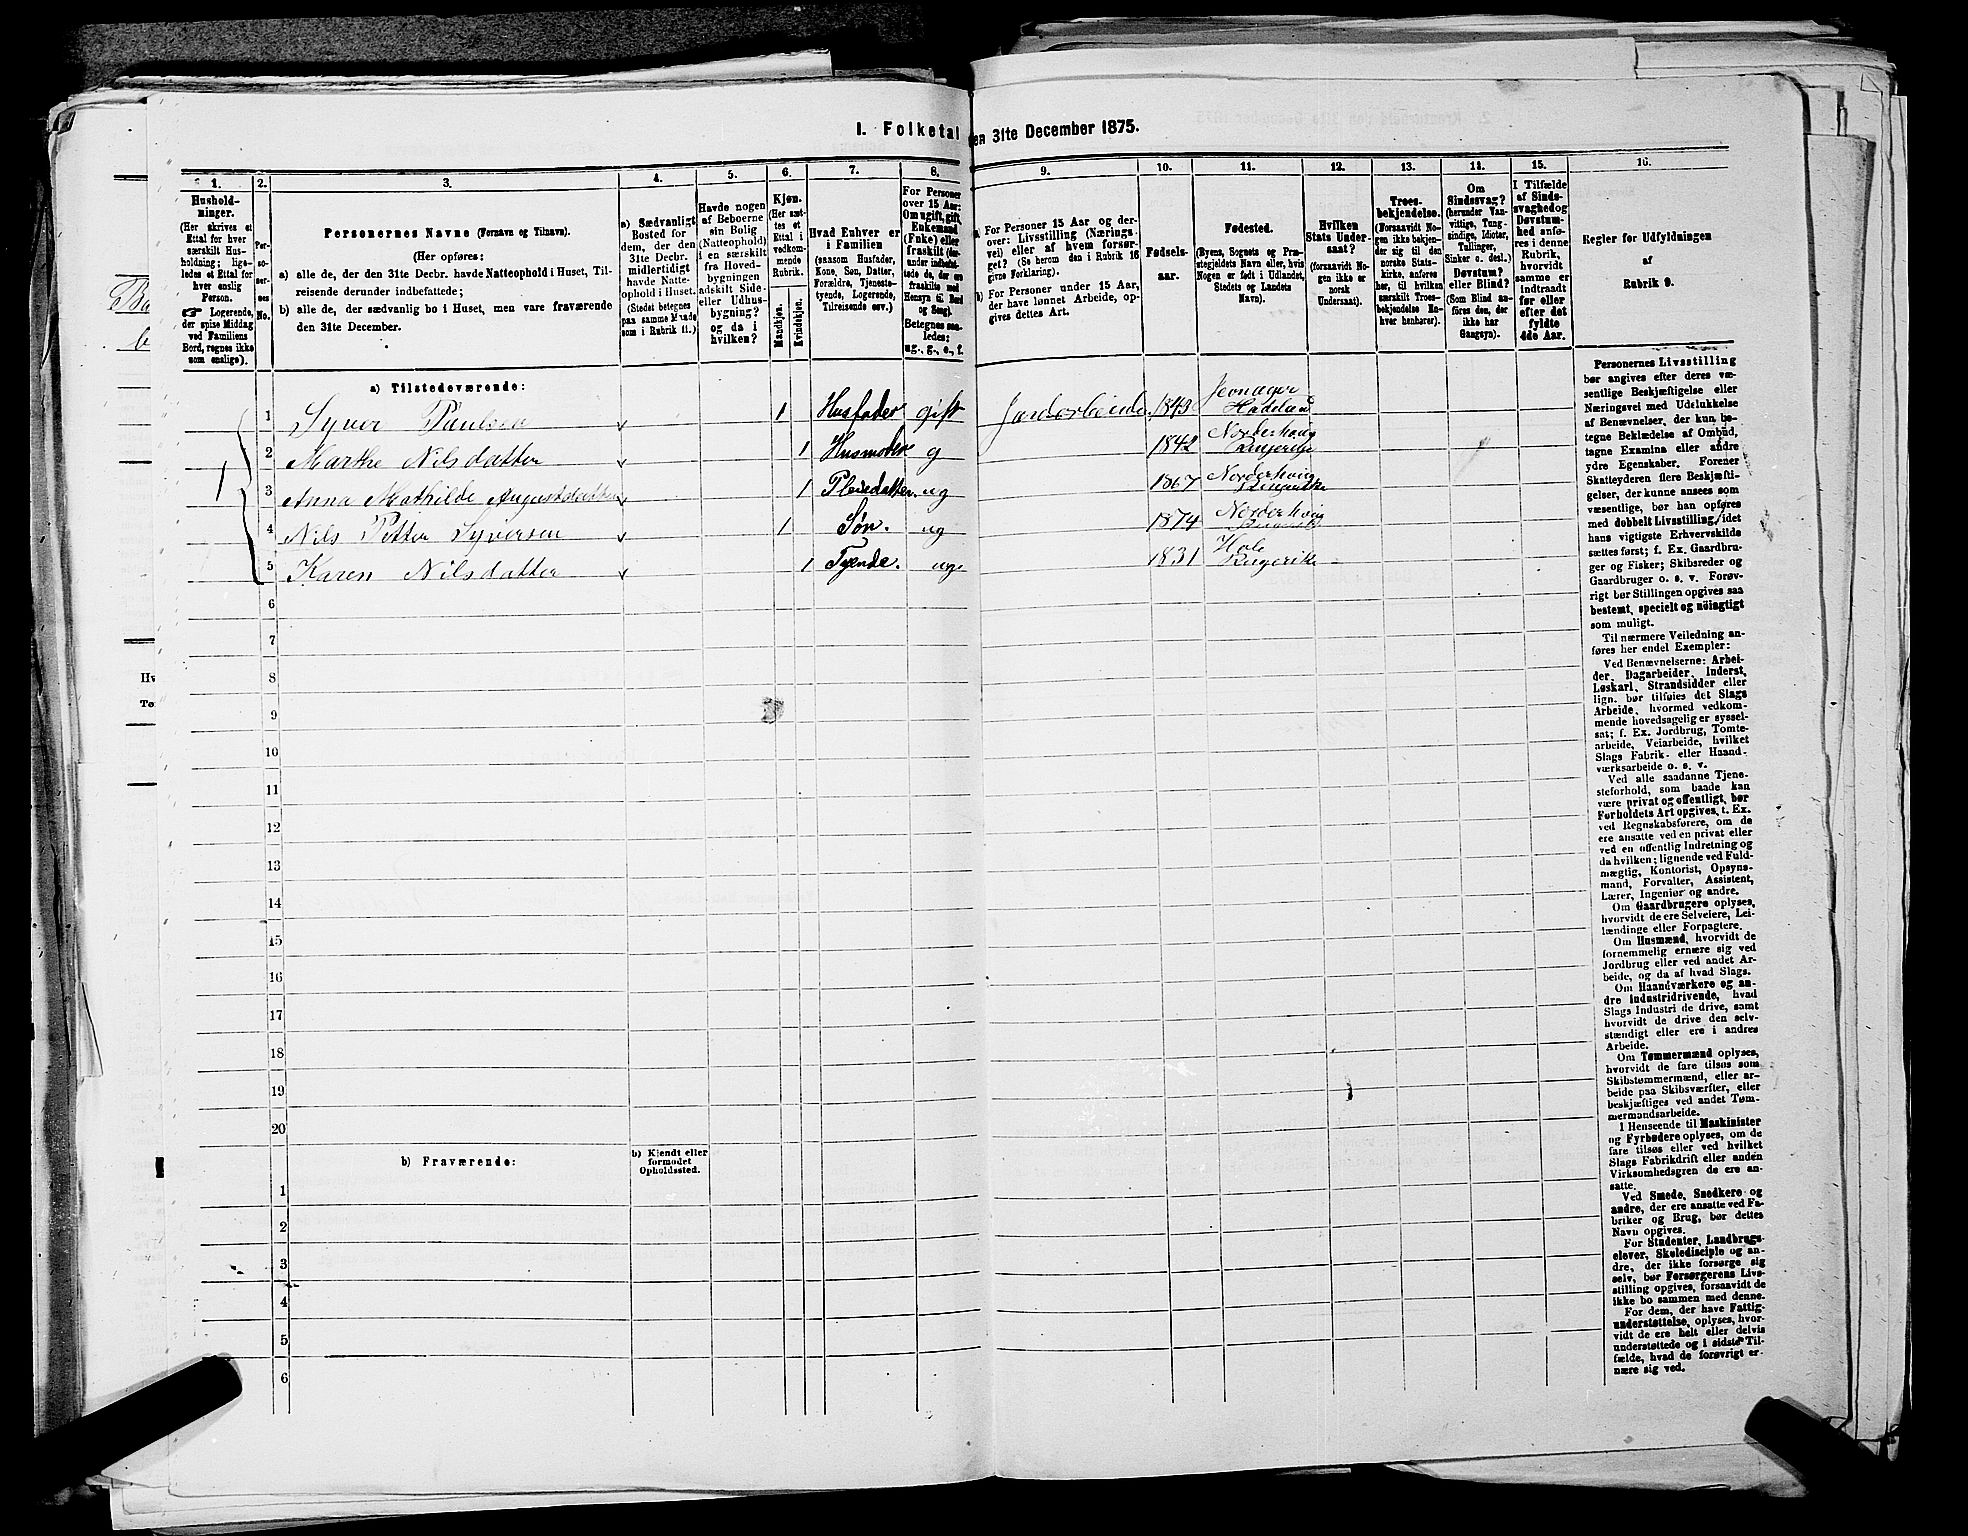 1. Folketal den 31te December 1875.
1.
Hushold-
ninger.
(Her skrives et
Ettal for hver
særskilt Hus-
holdning; lige-
ledes et Ettal for
hver enslig
Person.
Logerende,
der spise Middag
ved Familiens
Bord, regnes ikke
som enslige).
2.
Per-
so-
ner-
nes
No.
3.
Personernes Navne (Fornavn og Tilnavn).
(Her opføres:
a) alle de, der den 31te Decbr. havde Natteophold i Huset, Til-
reisende derunder indbefattede;
b) alle de, der sædvanlig bo i Huset, men vare fraværende
den 31te December.
4.
a) Sædvanligt
Bosted for
dem, der den
31te Decbr.
midlertidigt
havde Natte-
ophold i Huset.
(Stedet betegnes
paa samme Maade
som i Rubrik 11.)
5.
Havde nogen
af Beboerne
sin Bolig
(Natteophold)
i en særskilt
fra Hoved-
bygningen
adskilt Side-
eller Udhus-
bygning?
og da i
hvilken?
6.
Kjøn.
(Her sæt-
tes et
Ettal i
vedkom-
mende
Rubrik.
Mandkjøn.
Kvindekjøn.
7.
Hvad Enhver er
i Familien
(saasom Husfader,
Kone, Søn, Datter,
Forældre, Tjeneste-
tyende, Logerende,
Tilreisende osv.)
8.
For Personer
over 15 Aar:
Om ugift, gift,
Enkemand
(Enke) eller
fraskilt
Betegnes saa-
ledes:
ug., g., e., f.
9.
a) For Personer 15 Aar og der-
over: Livsstilling (Nærings-
vei) eller af hvem forsør-
get? (Se herom den i Rubrik 16
givne Forklaring).
b) For Personer under 15 Aar,
der have lønnet Arbeide, op-
gives dettes Art.
10.
Fødsels-
aar.
11.
Fødested.
(Byens, Sognets og Præ-
stegjeldets Navn eller, hvis
Nogen er født i Udlandet,
Stedets og Landets
Navn).
12.
Hvilken
Stats Under-
saat?
(forsaavidt No-
gen ikke er
norsk
Undersaat).
13.
Troes-
bekjendelse.
(Forsaavidt No-
gen ikke bekjen-
der sig til den
norske Stats-
kirke, anføres
her, til hvilken
særskilt Troes-
bekjendelse En-
hver henhører).
14.
Om
Sindssvag?
(herunder Van-
vittige, Tung-
sindige, Idioter,
Tullinger,
Sinker o. desl.)
Døvstum?
eller Blind?
(Som Blind an-
føres den, der
ikke har
Gangsyn).
15.
I Tilfælde
af Sinds-
svaghed og
Døvstum-
hed anfø-
res i denne
Rubrik,
hvorvidt
samme er
indtraadt
før eller
efter det
fyldte
4de Aar.
16.
Regler for Udfyldningen
af
Rubrik 9.
a) Tilstedeværende:
1 1 Syver Paulsen 1 Husfader gift Jordarbeider 1843 Jevnager Hadeland
2 Marthe Nilsdatter 1 Husmoder g 1842 Norderhoug Ringerige
3 Anna Mathilde Augustsdatter 1 Pleiedatter ug 1867 Norderhoug Ringerike
4 Nils Petter Syversen 1 Søn. ug 1874 Norderhoug
5 Karen Nilsdatter 1 Tyende. ug. 1831 Hole Ringerike
6
7
8
9
10
11
12
13
14
15
16
17
18
19
20
b) Fraværende:
b) Kjendt eller
formodet
Opholdssted.
1
2
3
4
5
6
Personernes Livsstilling
bør angives efter deres væ-
sentlige Beskjæftigelse eller
Næringsvei med Udelukkelse
af Benævnelser, der kun be-
tegne Beklædelse af Ombud,
tagne Examina eller andre
ydre Egenskaber. Forener
Skatteyderen flere Beskjæfti-
gelser, der kunne ansees som
væsentlige, bør han opføres
med dobbelt Livsstilling, idet
hans vigtigste Erhvervskilde
sættes først; f. Ex. Gaardbru-
ger og Fisker; Skibsreder og
Gaardbruger o. s. v. Forøv-
rigt bør Stillingen opgives saa
bestemt, specielt og nøiagtigt
som muligt.
Til nærmere Veiledning an-
føres her endel Exempler:
Ved Benævnelserne: Arbei-
der, Dagarbeider, Inderst,
Løskarl, Strandsidder eller
lign. bør tilføies det Slags
Arbeide, hvormed vedkom-
mende hovedsagelig er syssel-
sat; f. Ex. Jordbrug, Tomte-
arbeide, Veiarbeide, hvilket
Slags Fabrik- eller Haand-
værksarbeide o. s. v.
Ved alle saadanne Tjene-
steforhold, som baade kan
være privat og offentligt, bør
Forholdets Art opgives, t. Ex.
ved Regnskabsførere, om de
ere ansatte ved en privat eller
ved en offentlig Indretning og
da hvilken; lignende ved Fuld-
mægtig, Kontorist, Opsyns-
mand, Forvalter, Assistent,
Lærer, Ingeniør og andre.
Om Gaardbrugere oplyses,
hvorvidt de ere Selveiere, Lei-
lændinge eller Forpagtere.
Om Husmænd, hvorvidt de
fornemmelig ernære sig ved
Jordbrug eller ved andet Ar-
beide, og da af hvad Slags.
Om Haandværkere og an-
dre Industridrivende, hvad
Slags Industri de drive, samt
hvorvidt de drive den selv-
stændigt eller ere i andres
Arbeide.
Om Tømmermænd oplyses,
hvorvidt de fare tilsøs som
Skibstømmermænd, eller ar-
beide paa Skibsværfter, eller
beskjæftiges ved andet Tøm-
mermandsarbeide.
I Henseende til Maskinister
og Fyrbødere oplyses, om de
fare tilsøs eller ved hvilket
Slags Fabrikdrift eller anden
Virksomhedsgren de ere an-
satte.
Ved Smede, Snedkere og
andre, der ere ansatte ved Fa-
briker og Brug, bør dettes
Navn opgives.
For Studenter, Landbrugs-
elever, Skoledisciple og an-
dre, der ikke forsørge sig
selv, bør Forsørgerens Livs-
stilling opgives, forsaavidt de
ikke bo sammen med denne.
For dem, der have Fattig-
understøttelse, oplyses, hvor-
vidt de ere helt eller delvis
understøttede og i sidste Til-
fælde, hvad de forøvrigt er-
nære sig ved.